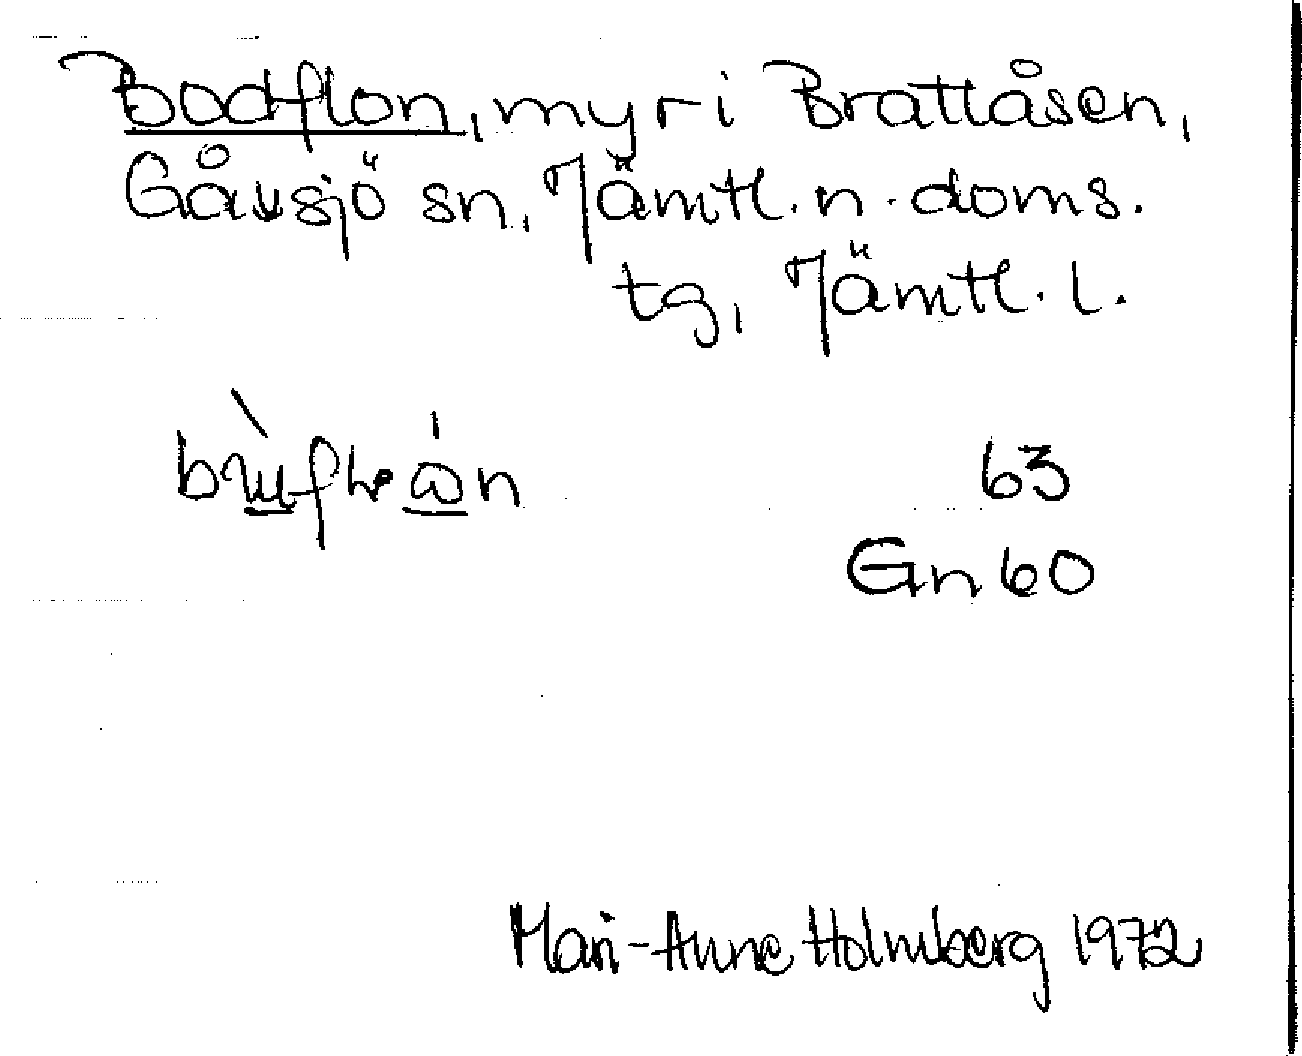 Bodflon, myr i Brattåsen,
Gåxsjö sn, Jämtl. n. doms.
tg, Jämtl. l.
63
Gn 60
Mari-Anne Holmberg 1972